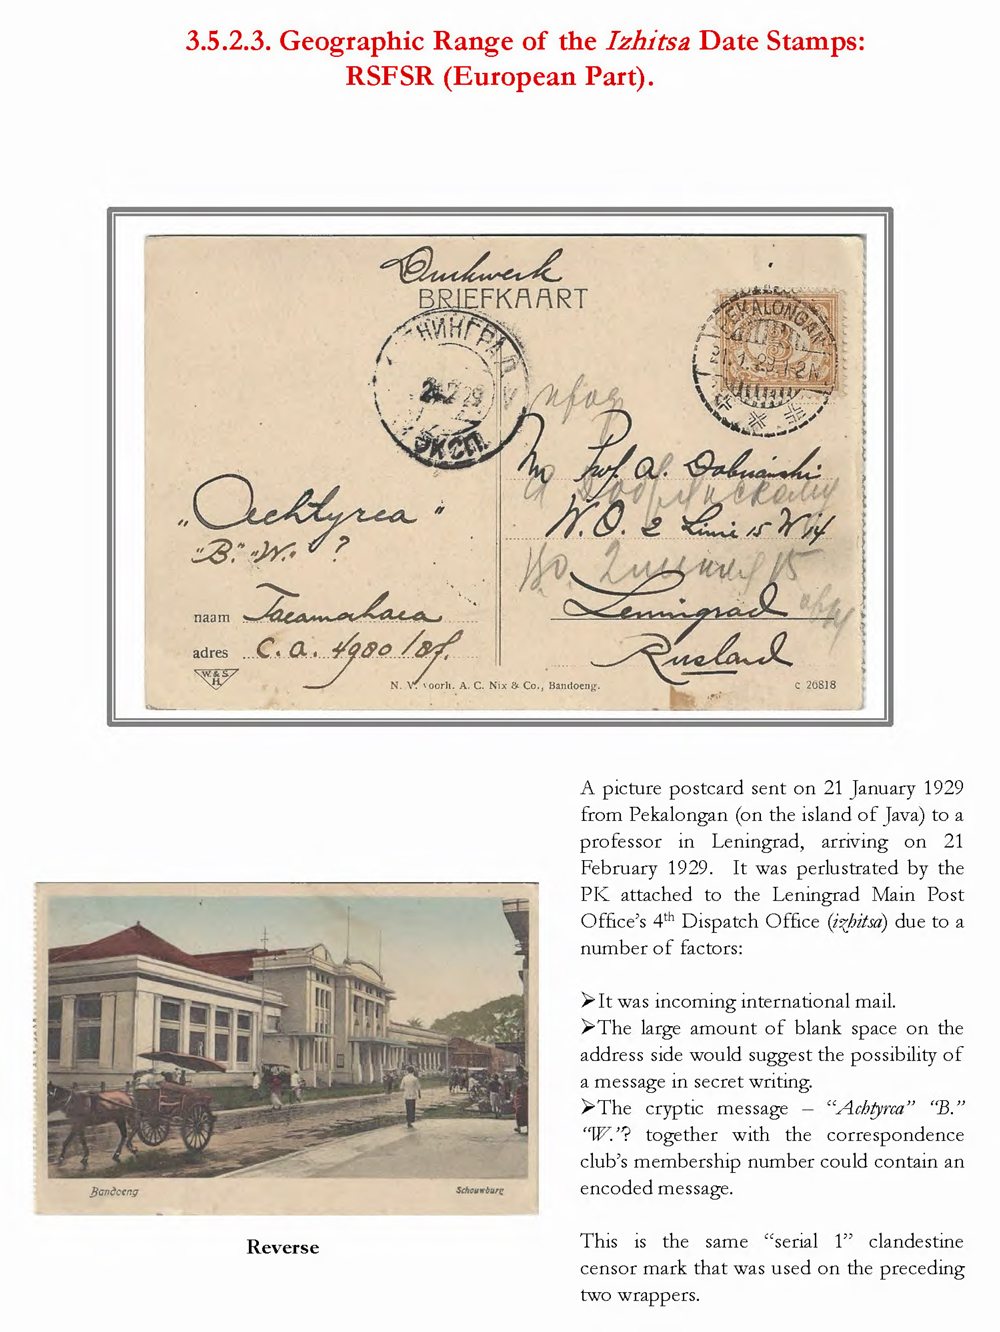 3.5.2.3. Geographic Range of the Izhitsa Date Stamps:
RSFSR (European Part).
Drukwerk
BRIEFKAART
ЛЕНИНГРАД
21.2.29
ЭКСП.
PEKALONGAN
21.1.29.1-2N
проф
To Prof. A. Dobrianski
А Добрянскому
W.O. 2 Linie 15 W 14
"Achtyrca"
"B." "W." ?
ВО. 2 линия 15
naam Tacamahaca
Leningrad
adres C.A. 4980/87.
Rusland
W. & S.
H.
N. V. voorh. A. C. Nix & Co., Bandoeng.
c 26818
A picture postcard sent on 21 January 1929
from Pekalongan (on the island of Java) to a
professor in Leningrad, arriving on 21
February 1929. It was perlustrated by the
PK attached to the Leningrad Main Post
Office's 4th Dispatch Office (izhitsa) due to a
number of factors:
➢It was incoming international mail.
➢The large amount of blank space on the
address side would suggest the possibility of
a message in secret writing.
➢The cryptic message – "Achtyrca" "B."
"W."? together with the correspondence
club's membership number could contain an
encoded message.
This is the same "serial 1" clandestine
censor mark that was used on the preceding
two wrappers.
Bandoeng
Schouwburg
Reverse